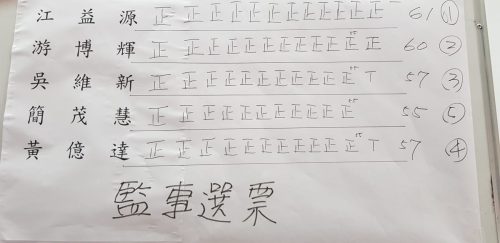 江益源 正正正正正正正正正正正正一 61 ①
游博輝 正正正正正正正正正正正正 60 ②
吳維新 正正正正正正正正正正正丅 57 ③
簡茂慧 正正正正正正正正正正正 55 ⑤
黃億達 正正正正正正正正正正正丅 57 ④
監事選票